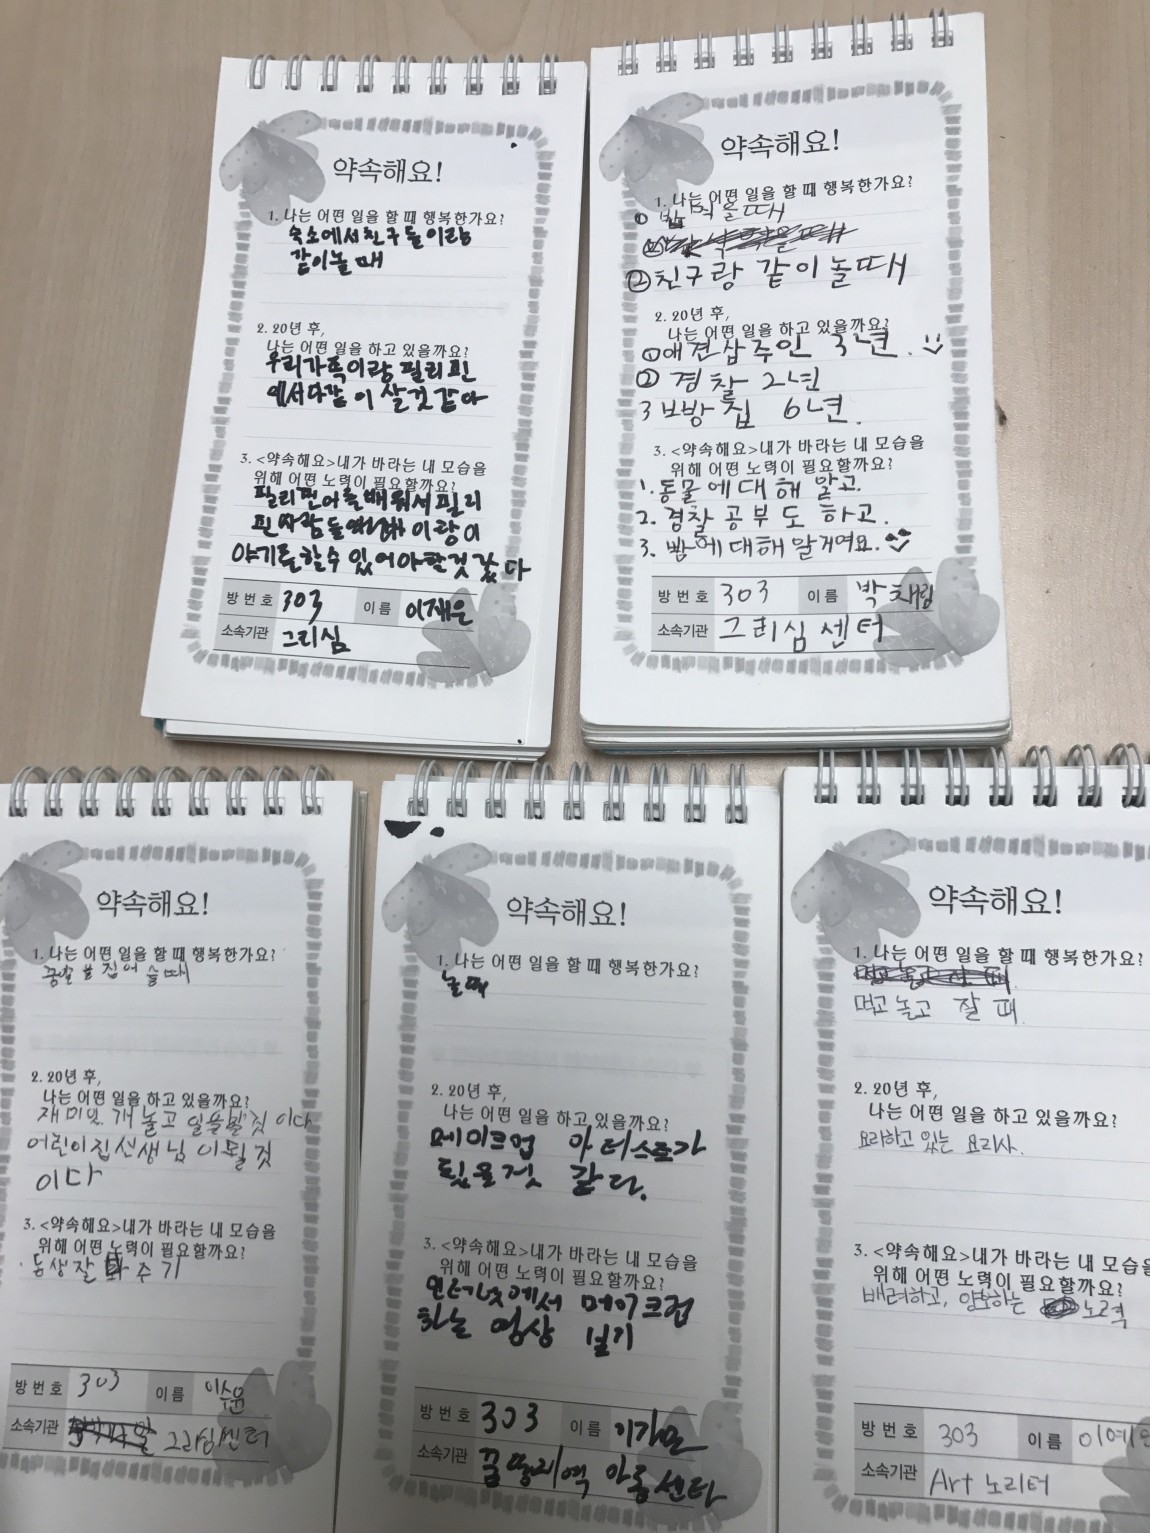 약속해요!
1. 나는 어떤 일을 할 때 행복한가요?
숙소에서 친구들이랑
같이놀 때
2. 20년 후,
나는 어떤 일을 하고 있을까요?
우리가족이랑 필리핀
에서다같이 살것같아
3. <약속해요>내가 바라는 내 모습을
위해 어떤 노력이 필요할까요?
필리핀어를배워서필리
핀사람들 이랑이
야기를할수있어야할것같다
방 번 호 303 이 름 이재은
소속기관 그리심
약속해요!
1. 나는 어떤 일을 할 때 행복한가요?
① 밥먹을때
②친구랑 같이놀때
2. 20년 후,
나는 어떤 일을 하고 있을까요?
①애견삽주인 3년.
② 경찰 2년
3 보방집 6년.
3. <약속해요>내가 바라는 내 모습을
위해 어떤 노력이 필요할까요?
1. 동물에대해 알고.
2. 경찰공부도 하고.
3. 빰에대해알거여요.
방 번 호 303 이 름 박채림
소속기관 그리심센터
약속해요!
1. 나는 어떤 일을 할 때 행복한가요?
집어 슬때
2. 20년 후,
나는 어떤 일을 하고 있을까요?
재미잇개놀고 이다
어린이집선생님이될것
이다
3. <약속해요>내가 바라는 내 모습을
위해 어떤 노력이 필요할까요?
동생잘 주기
방 번 호 303 이 름 이수윤
소속기관 그리심센터
약속해요!
1. 나는 어떤 일을 할 때 행복한가요?
놀때
2. 20년 후,
나는 어떤 일을 하고 있을까요?
메이크업 아티스트가
같다.
3. <약속해요>내가 바라는 내 모습을
위해 어떤 노력이 필요할까요?
인터넷에서 메이크업
하는 영상 보기
방 번 호 303 이 름
소속기관 아동센타
약속해요!
1. 나는 어떤 일을 할 때 행복한가요?
먹고 놀고 잘 때.
2. 20년 후,
나는 어떤 일을 하고 있을까요?
요리하고 있는 요리사.
3. <약속해요>내가 바라는 내 모습을
위해 어떤 노력이 필요할까요?
배려하고, 양보하는 노력
방 번 호 303 이 름 이예
소속기관 Art 노리터